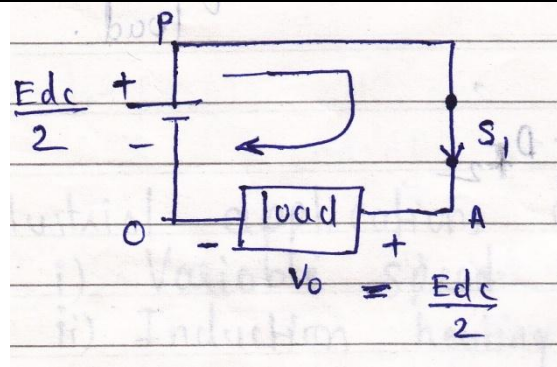 P
Edc + 
2 -
S1
O - load + A
V0 = Edc
2